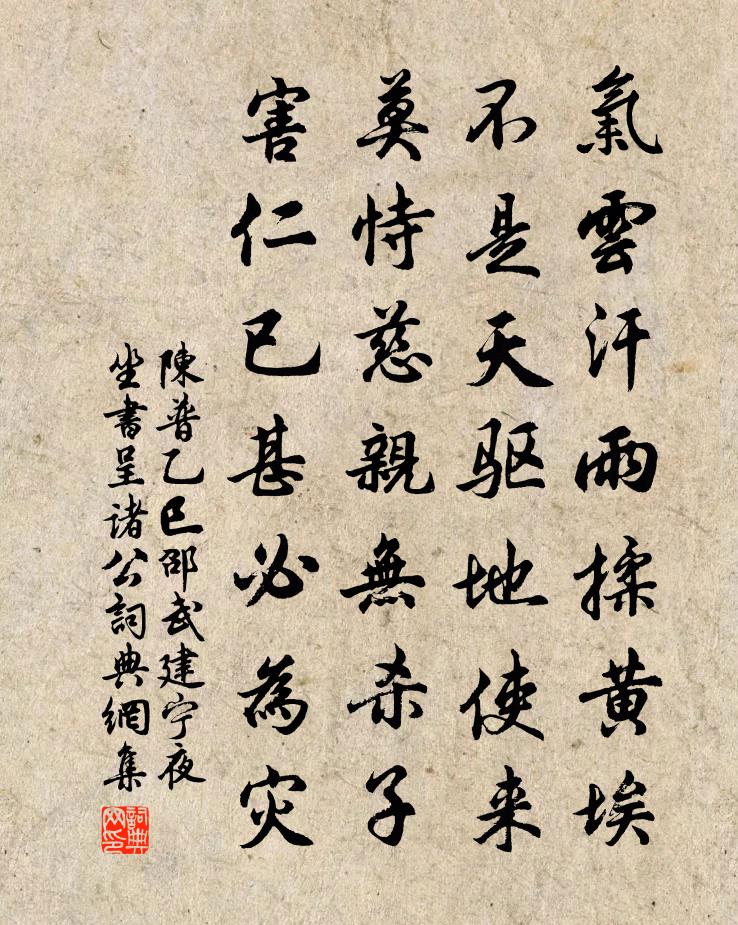 氣雲汗雨揉黄埃
不是天驱地使来
莫恃慈親無杀子
害仁已甚必為灾
陳普乙巳邵武建宁夜
坐書呈诸公詞典網集
詞典
网印